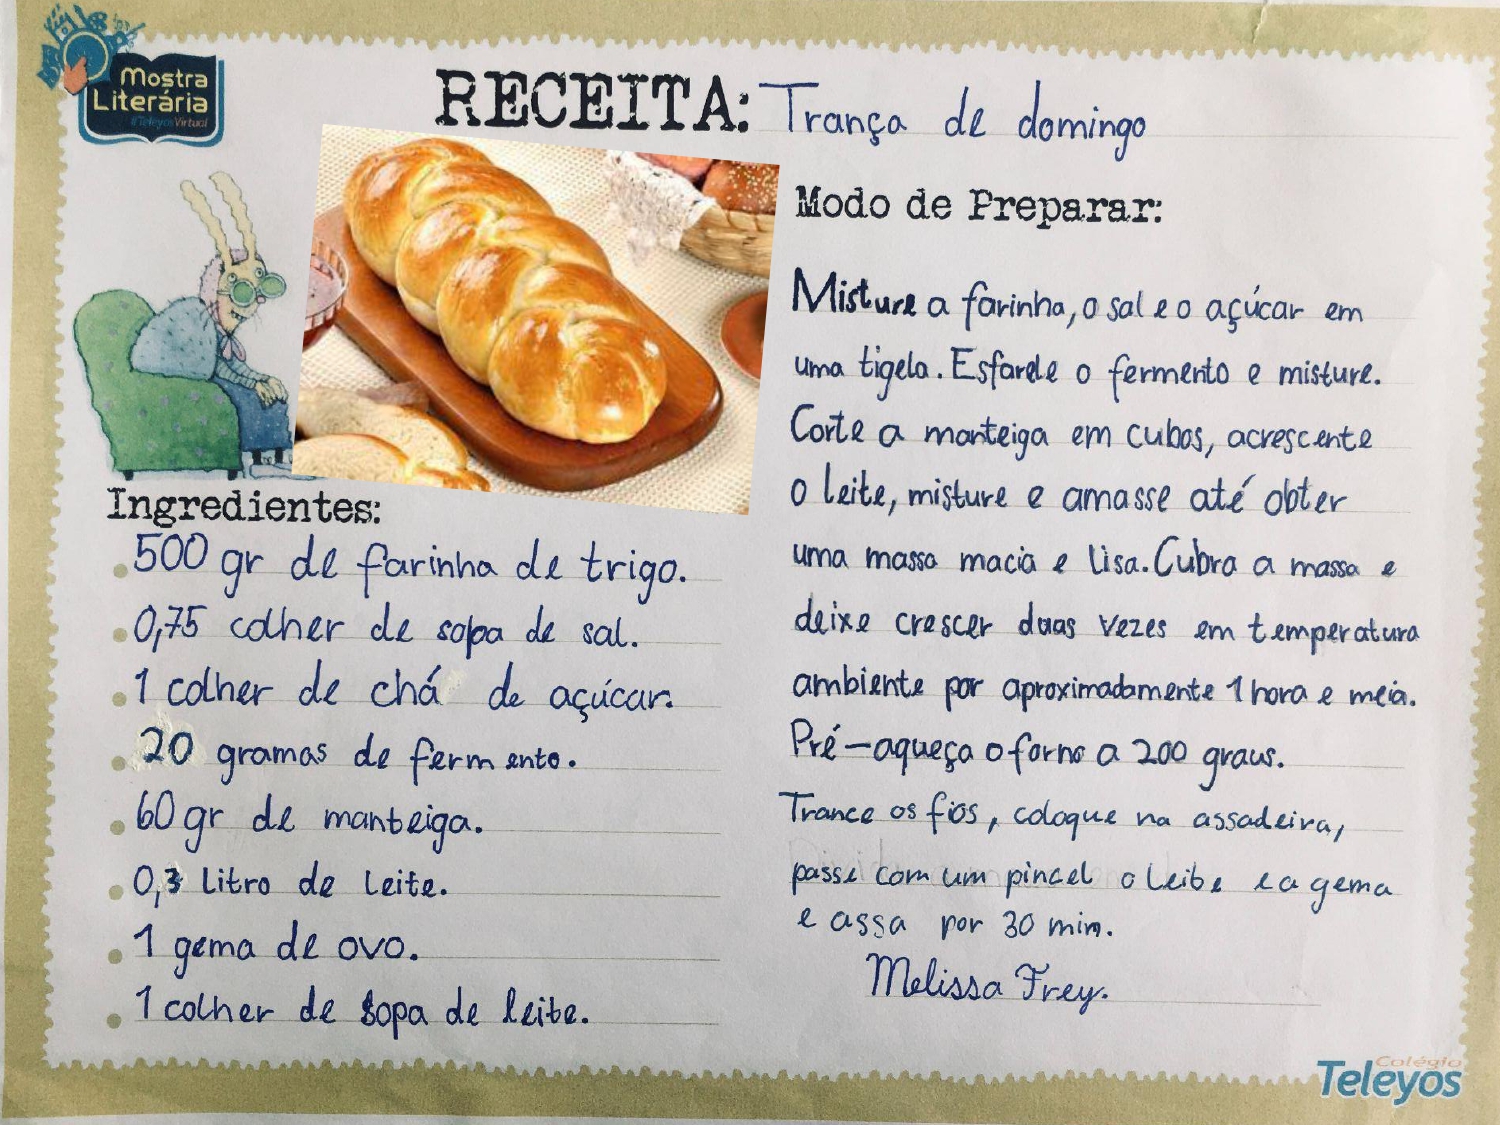 Mostra
Literária
#TeleyosVirtual
RECEITA: Trança de domingo
Ingredientes:
500 gr de farinha de trigo.
0,75 colher de sopa de sal.
1 colher de chá de açúcar.
20 gramas de fermento.
60 gr de manteiga.
0,3 litro de leite.
1 gema de ovo.
1 colher de sopa de leite.
Modo de Preparar:
Misture a farinha, o sal e o açúcar em
uma tigela. Esfarele o fermento e misture.
Corte a manteiga em cubos, acrescente
o leite, misture e amasse até obter
uma massa macia e lisa. Cubra a massa e
deixe crescer duas vezes em temperatura
ambiente por aproximadamente 1 hora e meia.
Pré-aqueça o forno a 200 graus.
Trance os fios, coloque na assadeira,
passe com um pincel o leite e a gema
e assa por 30 min.
Melissa Frey.
Colégio
Teleyos